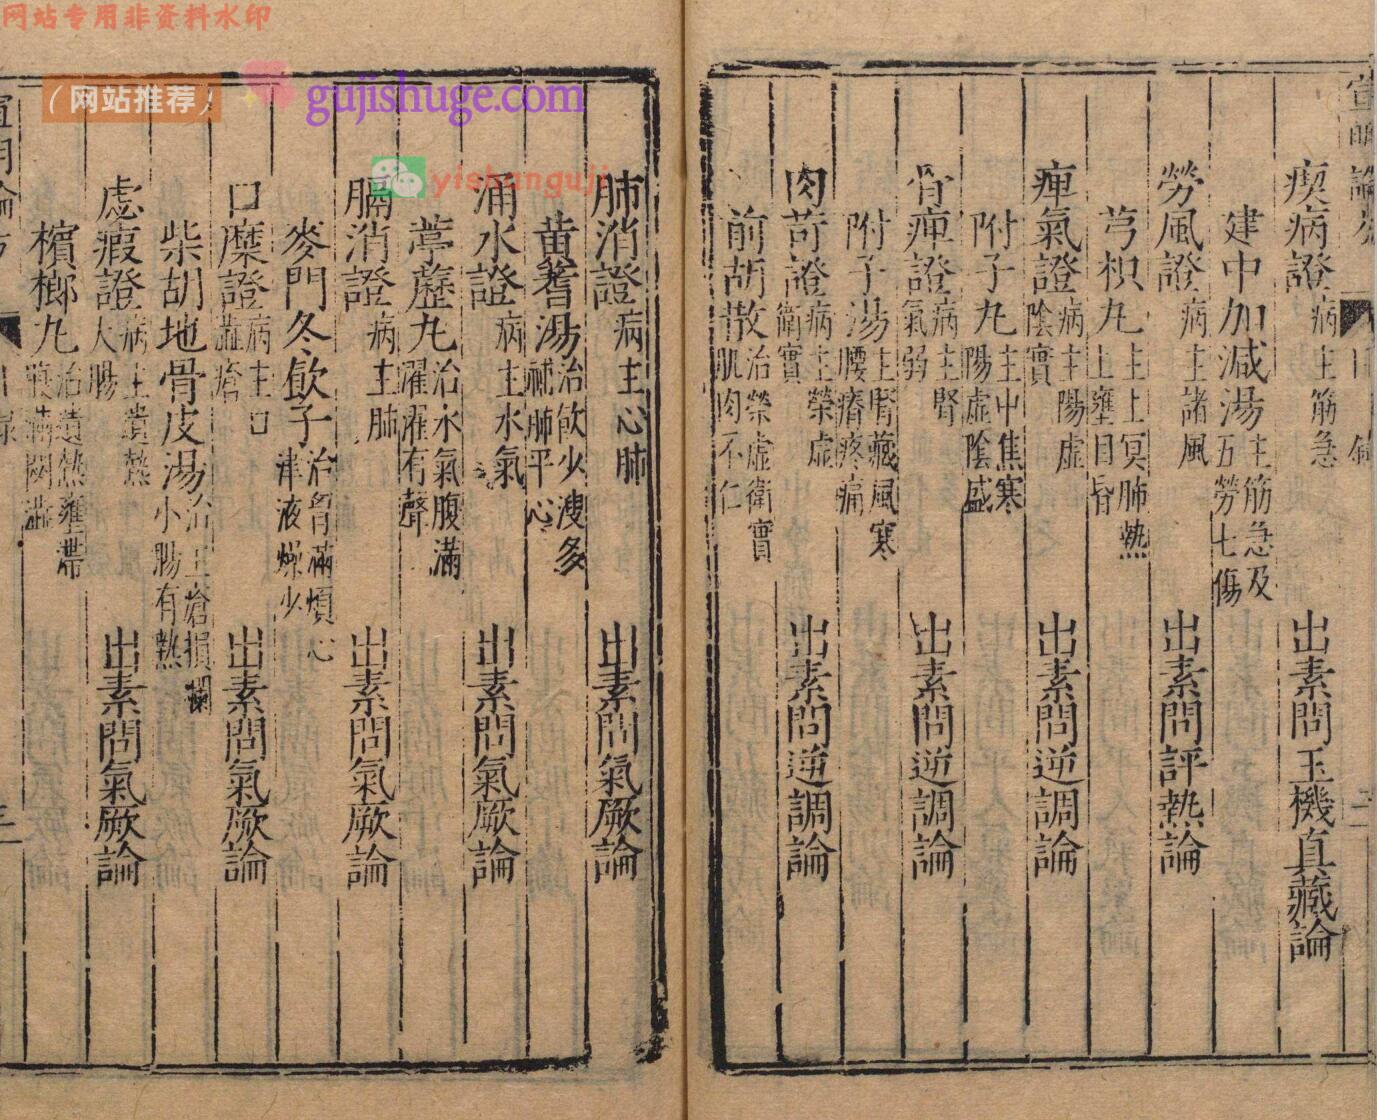 网站专用非资料水印
(网站推荐)
gujishuge.com
yishunguji
瘈病證病主筋急 出素問玉機真藏論
建中加減湯主筋急及五勞七傷
勞風證病主諸風 出素問評熱論
芎枳丸主上冥肺熱上壅目昏
痺氣證病主陽虛陰實 出素問逆調論
附子丸主中焦寒陽虛陰盛
骨痺證病主腎氣弱 出素問逆調論
附子湯主腎藏風寒腰瘠疼痛
肉苛證病主榮虛衛實 出素問逆調論
前胡散治榮虛衛實肌肉不仁
肺消證病主心肺 出素問氣厥論
黄蓍湯治飲少溲多補肺平心
涌水證病主水氣 出素問氣厥論
葶藶丸治水氣腹滿濯濯有聲
膈消證病主肺 出素問氣厥論
麥門冬飲子治胷滿煩心津液燥少
口糜證病主口蓝瘡 出素問氣厥論
柴胡地骨皮湯治口瘡損爛小腸有熱
虙瘕證病主遺熱大腸 出素問氣厥論
檳榔丸治遺熱壅滯
宣明論方
目錄
二
宣明論方
目錄
三